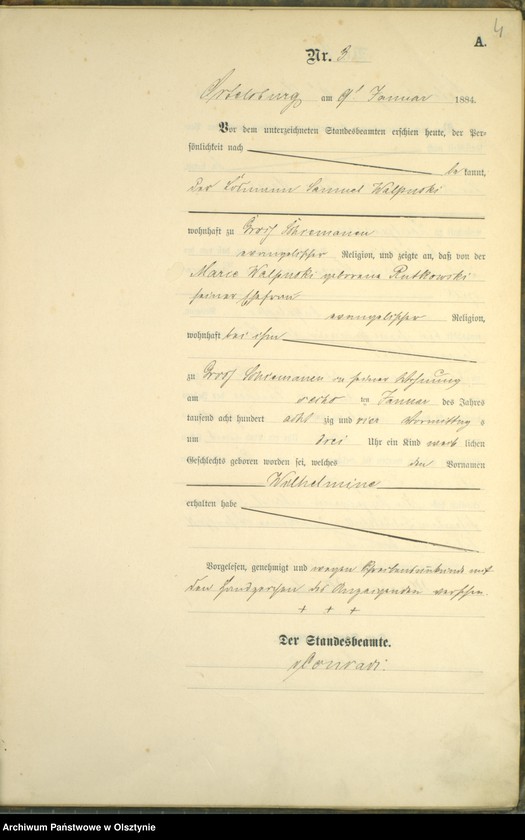 4
A.
Nr. 3
Ortelsburg am 9ᵗ Januar 1884.
Vor dem unterzeichneten Standesbeamten erschien heute, der Per-
sönlichkeit nach
be kannt,
der Samuel Walpuski
wohnhaft zu Groß Schiemanen
evangelischer Religion, und zeigte an, daß von der
Marie Walpuski geborene Rutkowski
seiner Ehefrau
evangelischer Religion,
wohnhaft bei ihm
zu Groß Schiemanen in seiner Wohnung
am ten Januar des Jahres
tausend acht hundert acht zig und vier Vormittag s
um drei Uhr ein Kind weib lichen
Geschlechts geboren worden sei, welches den Vornamen
Wilhelmine
erhalten habe
Vorgelesen, genehmigt und wegen Schreibensunkunde mit
den Handzeichen des Anzeigenden versehen.
+ + +
Der Standesbeamte.
Conradi.
Archiwum Państwowe w Olsztynie